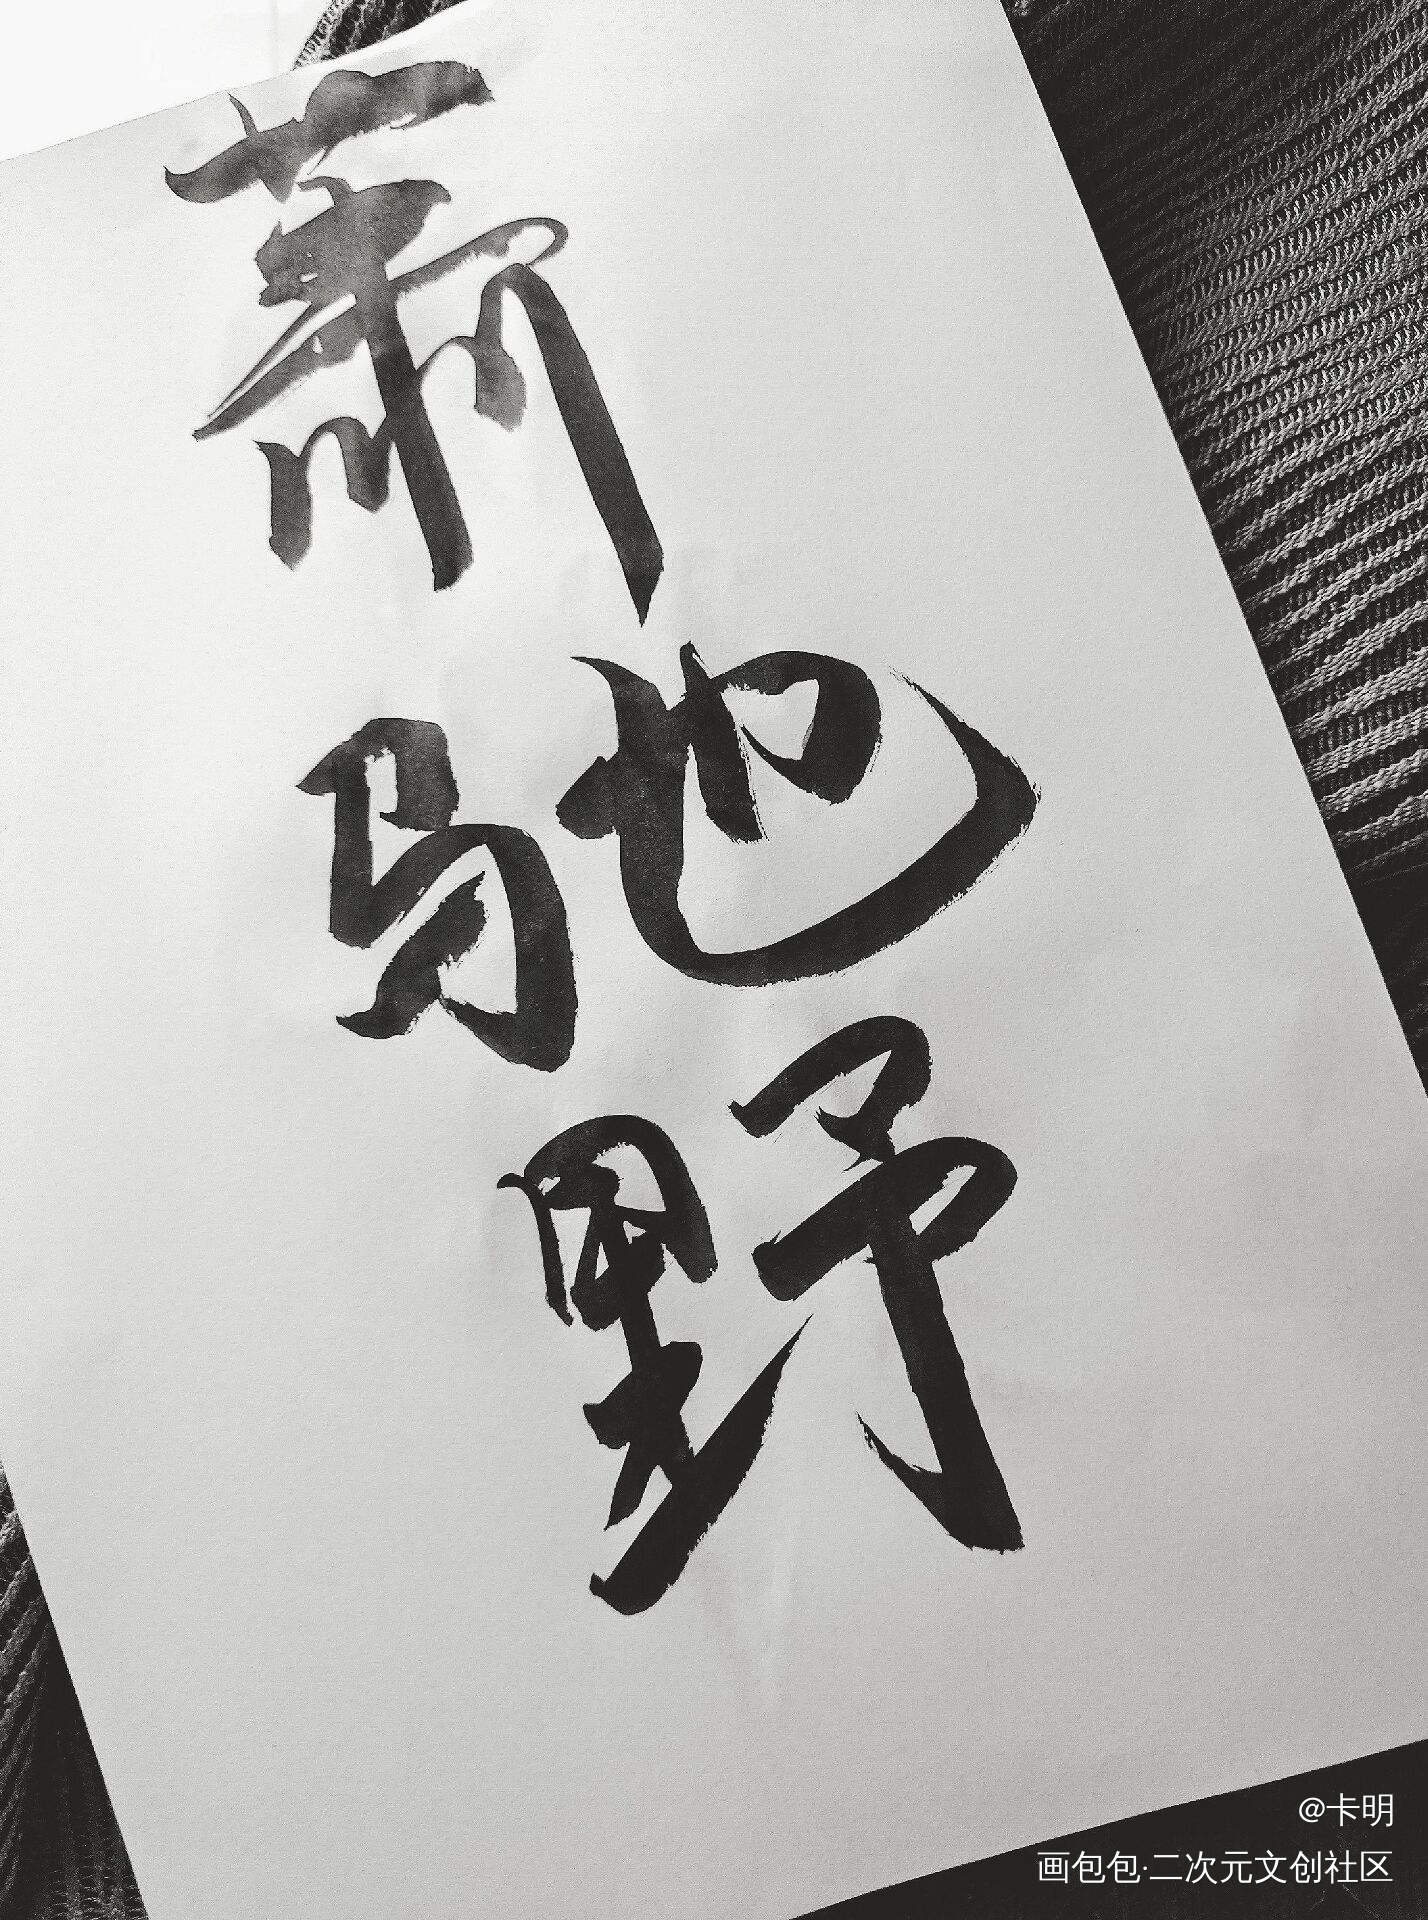 萧驰野
@卡明
画包包·二次元文创社区